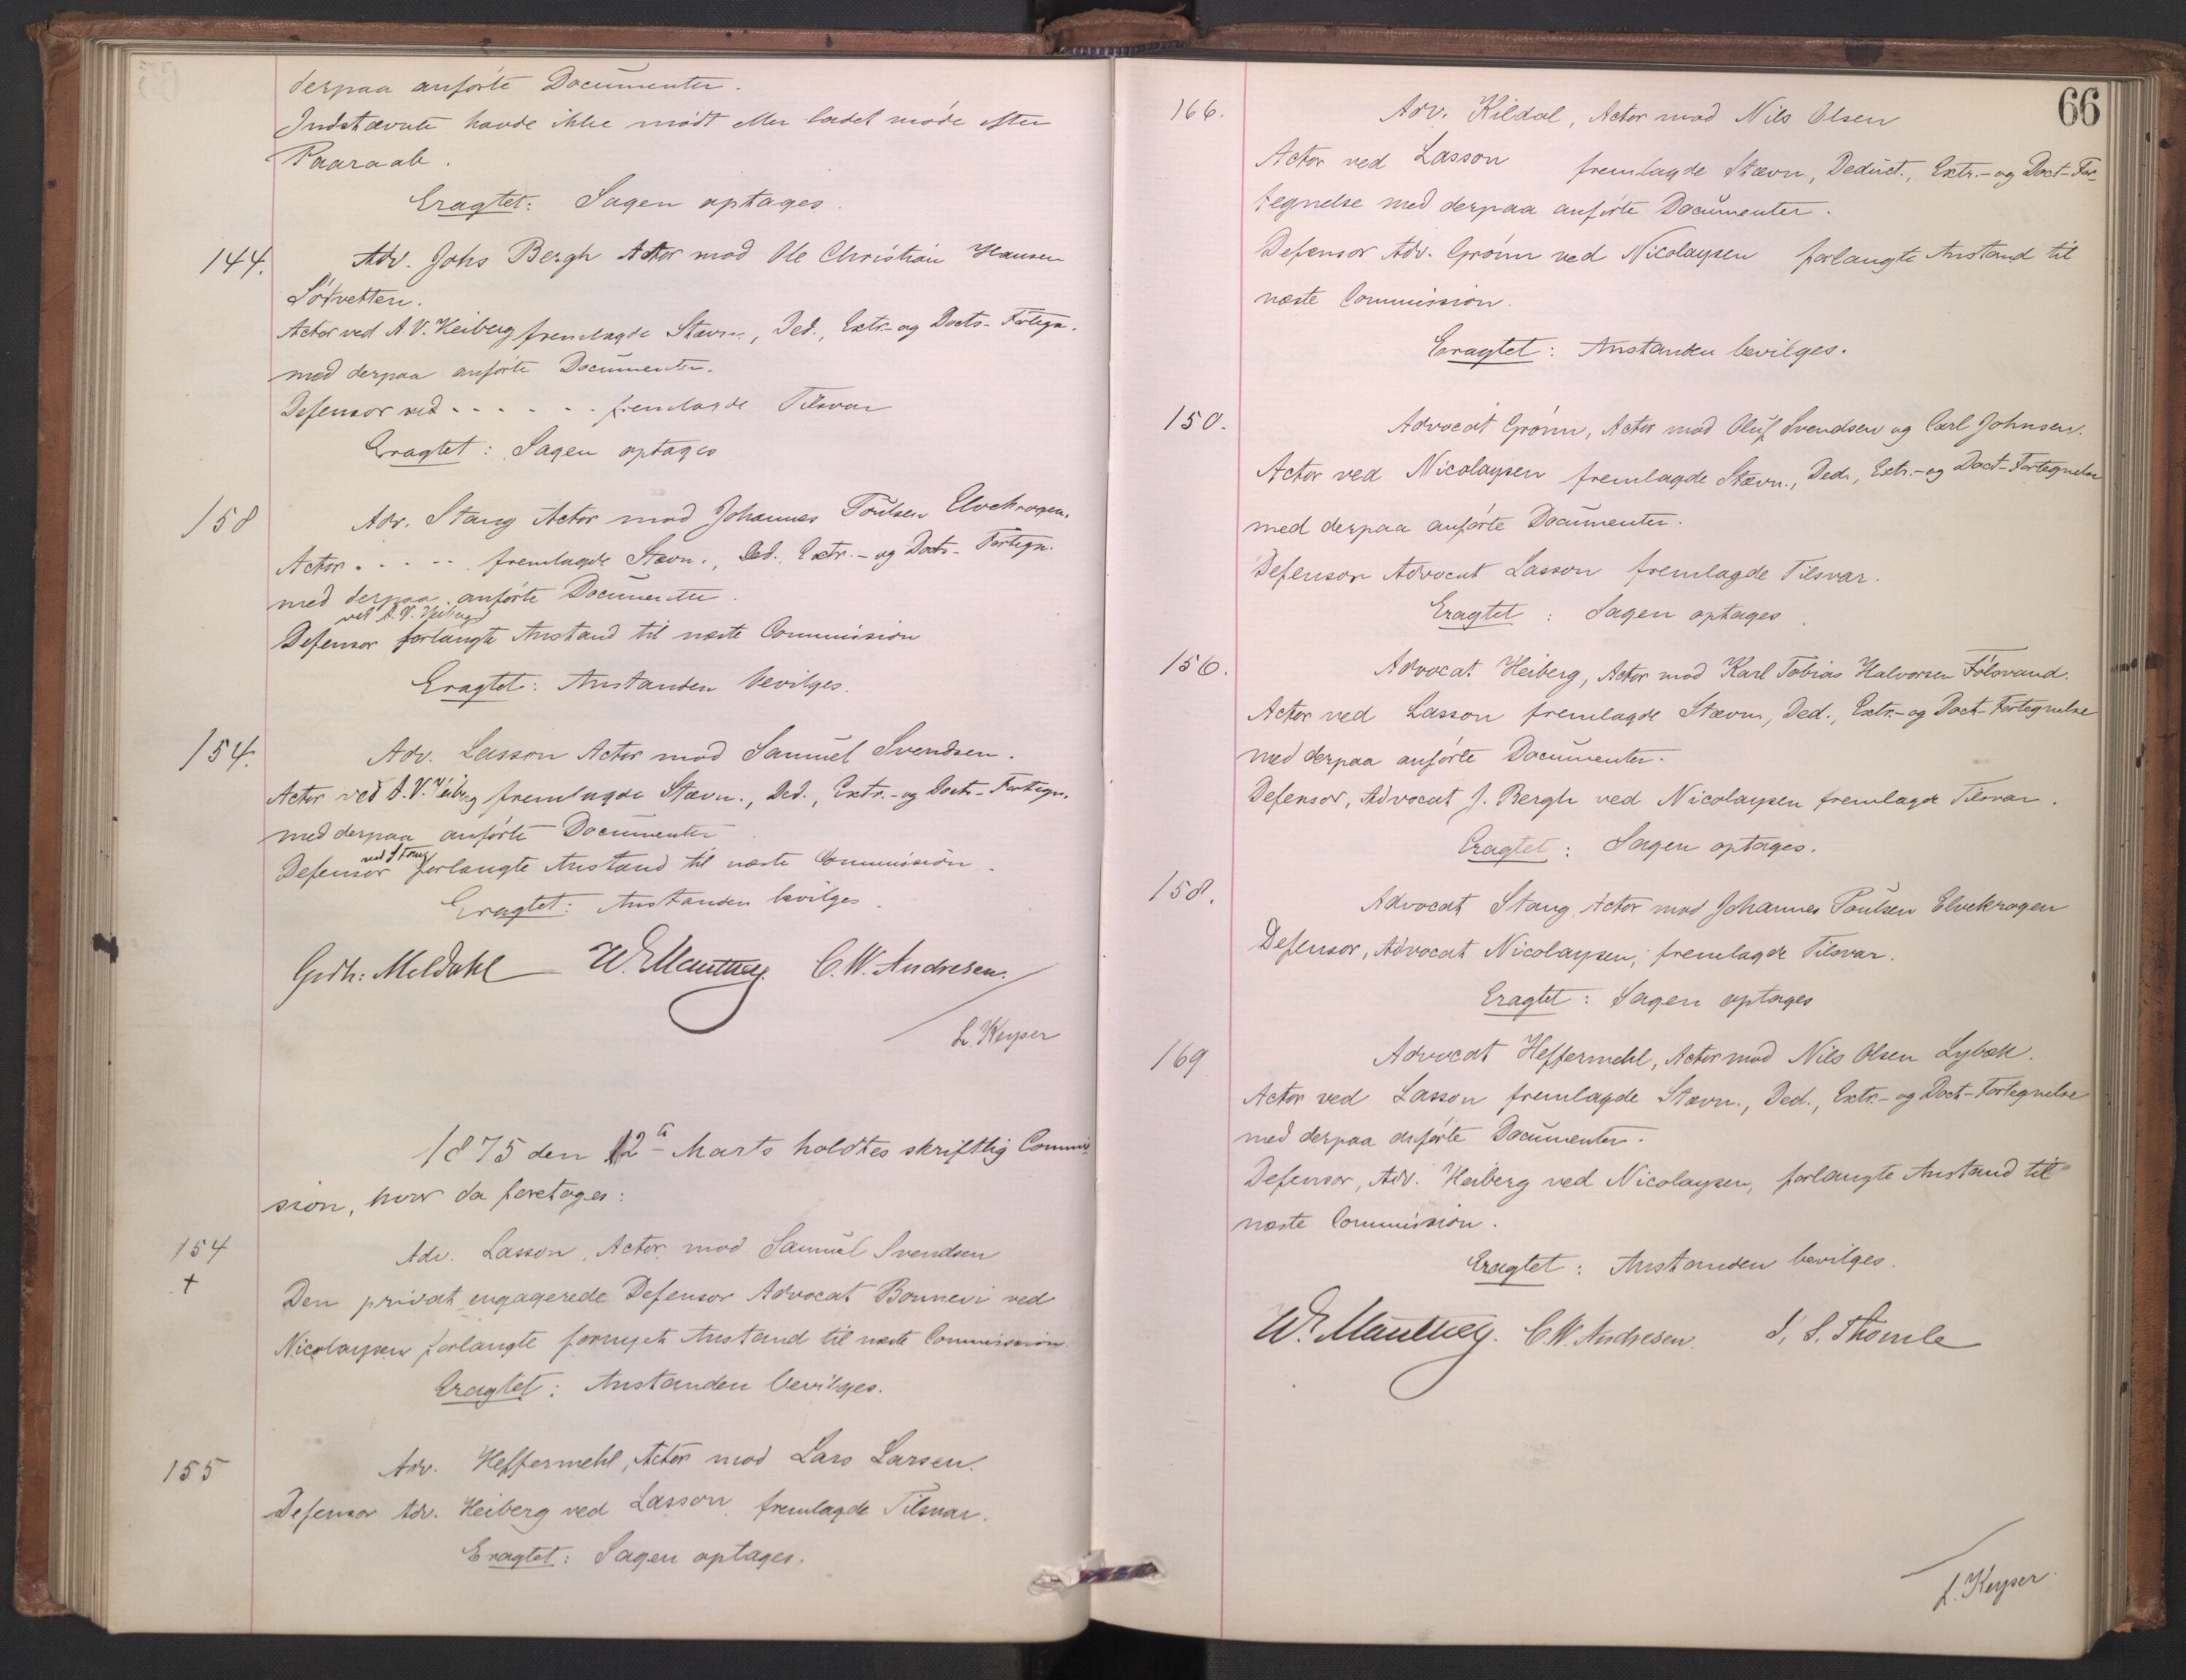 derpaa anførte Documenter.
Indstævnte havde ikke mødt eller ladet møde efter
Paaraab.
Eragtet: Sagen optages
144. Adv. Johs Bergh Actor mod Ole Christian Hansen
Sørvetten.
Actor ved A. V. Heiberg fremlagde Stævn., Ded., Extr.- og Docts- Fortegn.
med derpaa anførte Documenter.
Defensor ved - - - - - - fremlagde Tilsvar
Eragtet: Sagen optages
158 Adv. Stang Actor mod Johannes Poulsen Elvekragen.
Actor - - - - - fremlagde Stævn., Ded. Extr.- og Docts- Fortegn.
med derpaa anførte Documenter.
ved A. V. Heiberg
Defensor forlangte Anstand til næste Commission
Eragtet: Anstanden bevilges.
154. Adv. Lasson Actor mod Samuel Svendsen.
Actor ved A. V. Heiberg fremlagde Stævn., Ded., Extr.- og Docts- Fortegn.
med derpaa anførte Documenter
ved Stang
Defensor forlangte Anstand til næste Commission.
Eragtet: Anstanden bevilges.
Meldahl C. W. Andresen.
L. Keyser
1875 den 12te Marts holdtes skriftlig Commis-
sion, hvor da foretoges:
154 Adv. Lasson, Actor mod Samuel Svendsen
+
Den privat engagerede Defensor Advocat Bonnevi ved
Nicolaysen forlangte fornyet Anstand til næste Commission
Eragtet: Anstanden bevilges.
155 Adv. Heffermehl, Actor mod Lars Larsen.
Defensor Adv. Heiberg ved Lasson fremlagde Tilsvar.
Eragtet: Sagen optages.
66
166. Adv. Kildal, Actor mod Nils Olsen
Actor ved Lasson fremlagde Stævn., Deduct., Extr.- og Doct-For-
tegnelse med derpaa anførte Documenter.
Defensor Adv. Grønn ved Nicolaysen forlangte Anstand til
næste Commission.
Eragtet: Anstanden bevilges.
150. Advocat Grønn, Actor mod Oluf Svendsen og Carl Johnsen.
Actor ved Nicolaysen fremlagde Stævn., Ded., Extr.- og Doct-Fortegnelse
med derpaa anførte Documenter.
Defensor Advocat Lasson fremlagde Tilsvar.
Eragtet: Sagen optages.
156. Advocat Heiberg, Actor mod Karl Tobias Halvorsen Følsvand.
Actor ved Lasson fremlagde Stævn, Ded., Extr.- og Doct-Fortegnelse
med derpaa anførte Documenter.
Defensor, Advocat J. Bergh ved Nicolaysen fremlagde Tilsvar.
Eragtet: Sagen optages.
158. Advocat Stang Actor mod Johannes Poulsen Elvekragen
Defensor, Advocat Nicolaysen, fremlagde Tilsvar.
Eragtet: Sagen optages
169 Advocat Heffermehl, Actor mod Nils Olsen Lybæk.
Actor ved Lasson fremlagde Stævn., Ded., Extr.- og Doct-Fortegnelse
med derpaa anførte Documenter.
Defensor, Adv. Heiberg ved Nicolaysen, forlangte Anstand til
næste Commission.
Eragtet: Anstanden bevilges.
C. W. Andresen. S. S. Thomle
L. Keyser.